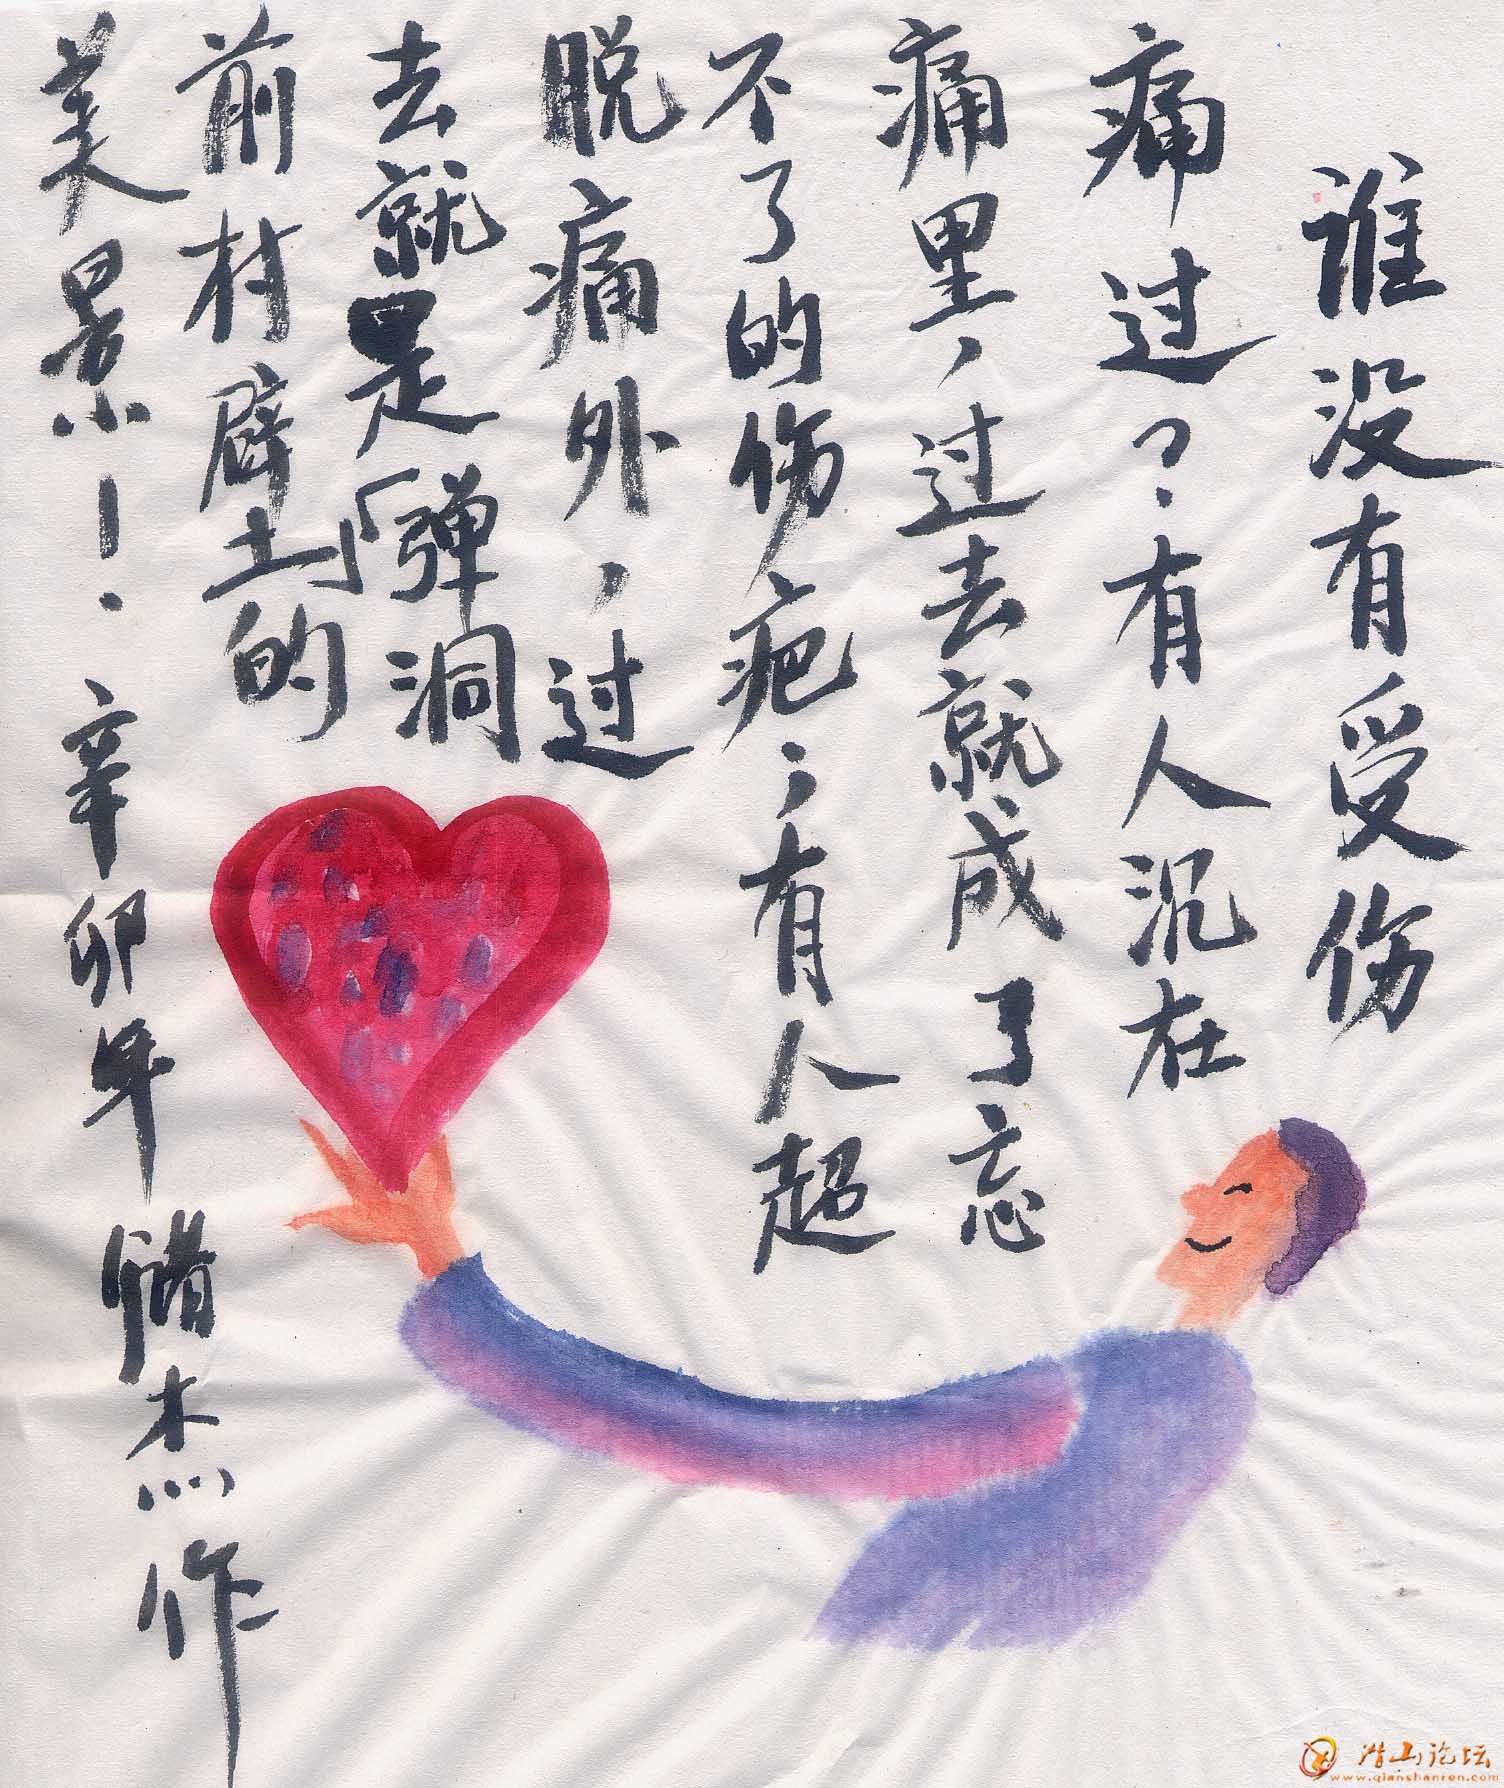 谁没有受伤
痛过？有人沉在
痛里，过去就成了忘
不了的伤疤；有人超
脱痛外，过
去就是「弹洞
前村壁」的
美景！
辛卯年 储杰作
潜山论坛
www.qianshanren.com